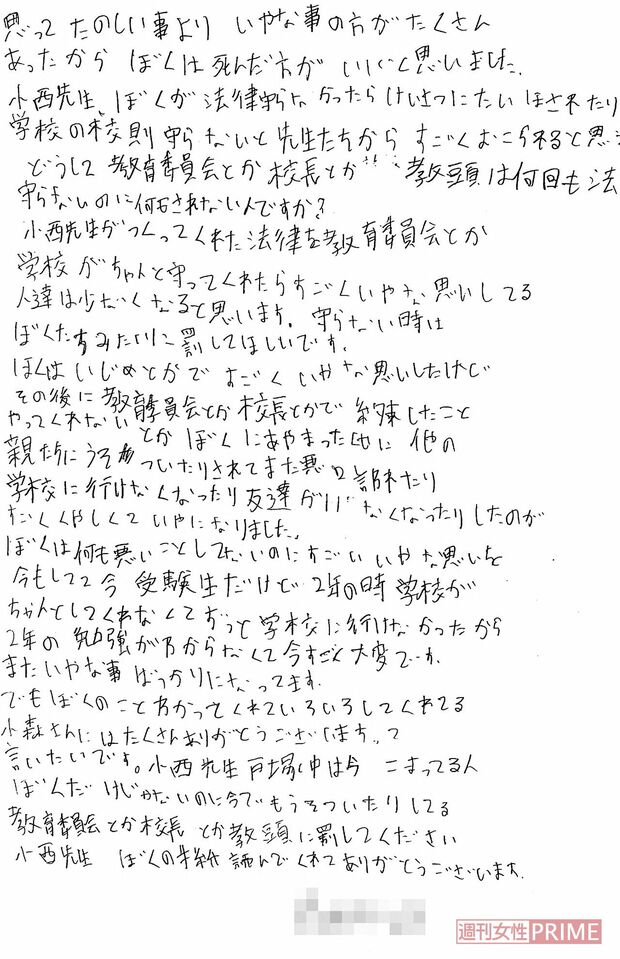 思って たのしい事より いやな事の方がたくさん
あったから ぼくは死んだ方が いいと思いました。
小西先生、ぼくが 法律守らなかったらけいさつにたいほされたり
学校の校則守らないと先生たちから すごくおこられると思
どうして教育委員会とか校長とか 教頭は何回も法
守らないのに何もされないんですか?
小西先生がつくってくれた法律を教育委員会とか
学校がちゃんと守ってくれたらすごくいやな思いしてる
人達は少なくなると思います。守らない時は
ぼくたちみたいに罰してほしいです。
ぼくはいじめとかで すごく いやな思いしたけど
その後に教育委員会とか校長とかで 約束したこと
やってくれない とか ぼくにあやまった他に 他の
親たちにうそ ついたりされてまた悪口言われたり
学校に行けなくなったり友達がいなくなったりしたのが
すごくくやしくていやになりました。
ぼくは何も悪いことしてないのにすごい いやな思いを
今もしてて今 受験生だけど 2年の時 学校が
ちゃんとしてくれなくてずっと学校に行けなかったから
2年の勉強がわからなくて今すごく大変です。
またいやな事ばっかりになってます。
でもぼくのことわかってくれていろいろしてくれてる
小森さんにはたくさんありがとうございます。って
言いたいです。小西先生戸塚中は今 こまってる人
ぼくだけじゃないのに今でもうそついたりしてる
教育委員会とか校長とか教頭に罰してください
小西先生 ぼくの手紙読んでくれてありがとうございます。
週刊女性PRIME